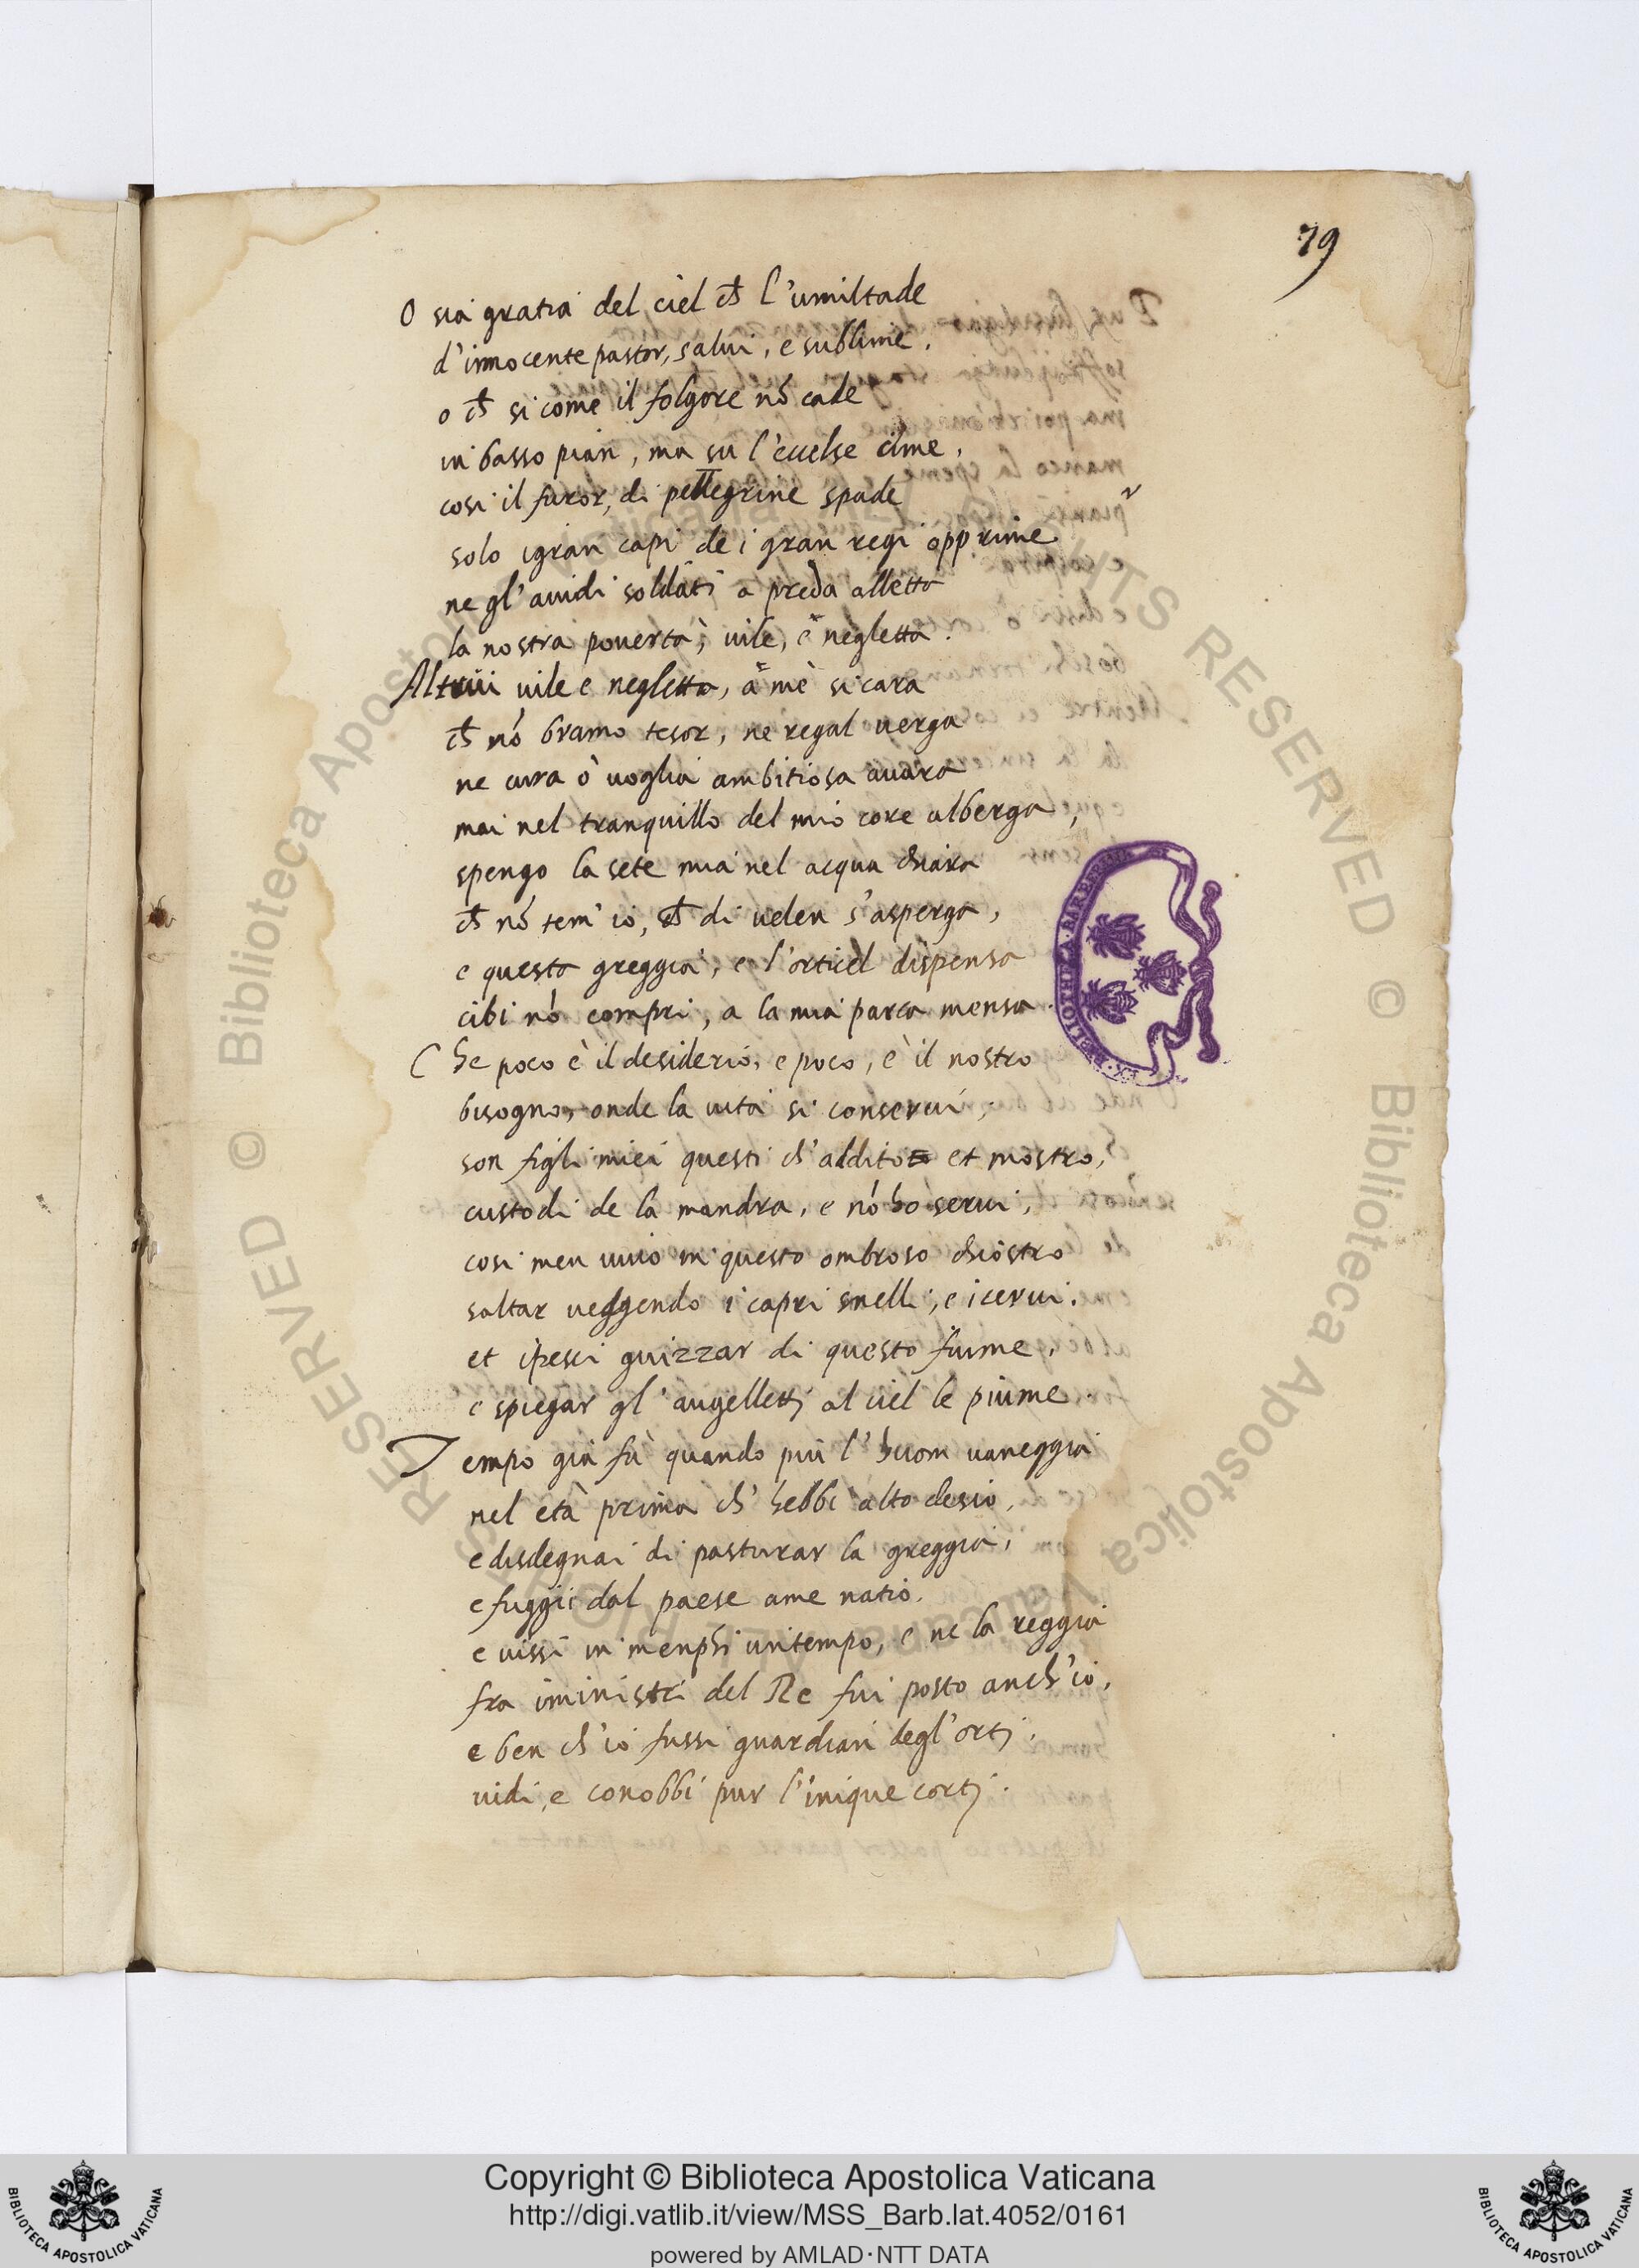 79
O sia gratia del ciel ch̄ l'umiltade
d'innocente pastor, salvi, e sublime,
o ch̄ si come il folgore nō cade
in basso pian, ma su l'eccelse cime,
cosi il furor, di pellegrine spade
solo i gran capi de i gran regi opprime
ne gl'auidi soldati a preda alletta
la nostra pouertà, uile, e negletta.
Altrui uile e negletta, a me si cara
ch̄ nō bramo tesor, ne regal uerga
ne cura ò uoglia ambitiosa auara
mai nel tranquillo del mio core alberga,
spengo la sete mia nel acqua chiara
ch̄ nō tem'io, ch̄ di uelen s'asperga,
e questa greggia, e l'orticel dispensa
cibi nō compri, a la mia parca mensa.
Che poco è il desiderio, e poco, è il nostro
bisogno, onde la uita si conserui,
son figli miei questi ch'addito et mostro,
custodi de la mandra, e nō ho serui,
cosi men uiuo in questo ombroso chiostro
saltar ueggendo i capri snelli, e i cerui.
et i pesci guizzar di questo fiume,
e spiegar gl'augelletti al ciel le piume.
Tempo gia fù quando piu l'huom uaneggia
nel età prima ch'hebbi alto desio,
e disdegnai di pasturar la greggia,
e fuggii dal paese a me natio.
e uissi in menphi un tempo, e ne la reggia
fra i ministri del Re fui posto anch'io,
e ben ch'io fussi guardian degl'orti,
uidi, e conobbi pur l'inique corti.
BIBLIOTHECA BARBERINA
RESERVED © Biblioteca Apostolica Vaticana
RIGHTS RESERVED © Biblioteca Apostolica Vaticana
BIBLIOTECA APOSTOLICA VATICANA
Copyright © Biblioteca Apostolica Vaticana
http://digi.vatlib.it/view/MSS_Barb.lat.4052/0161
powered by AMLAD·NTT DATA
BIBLIOTECA APOSTOLICA VATICANA